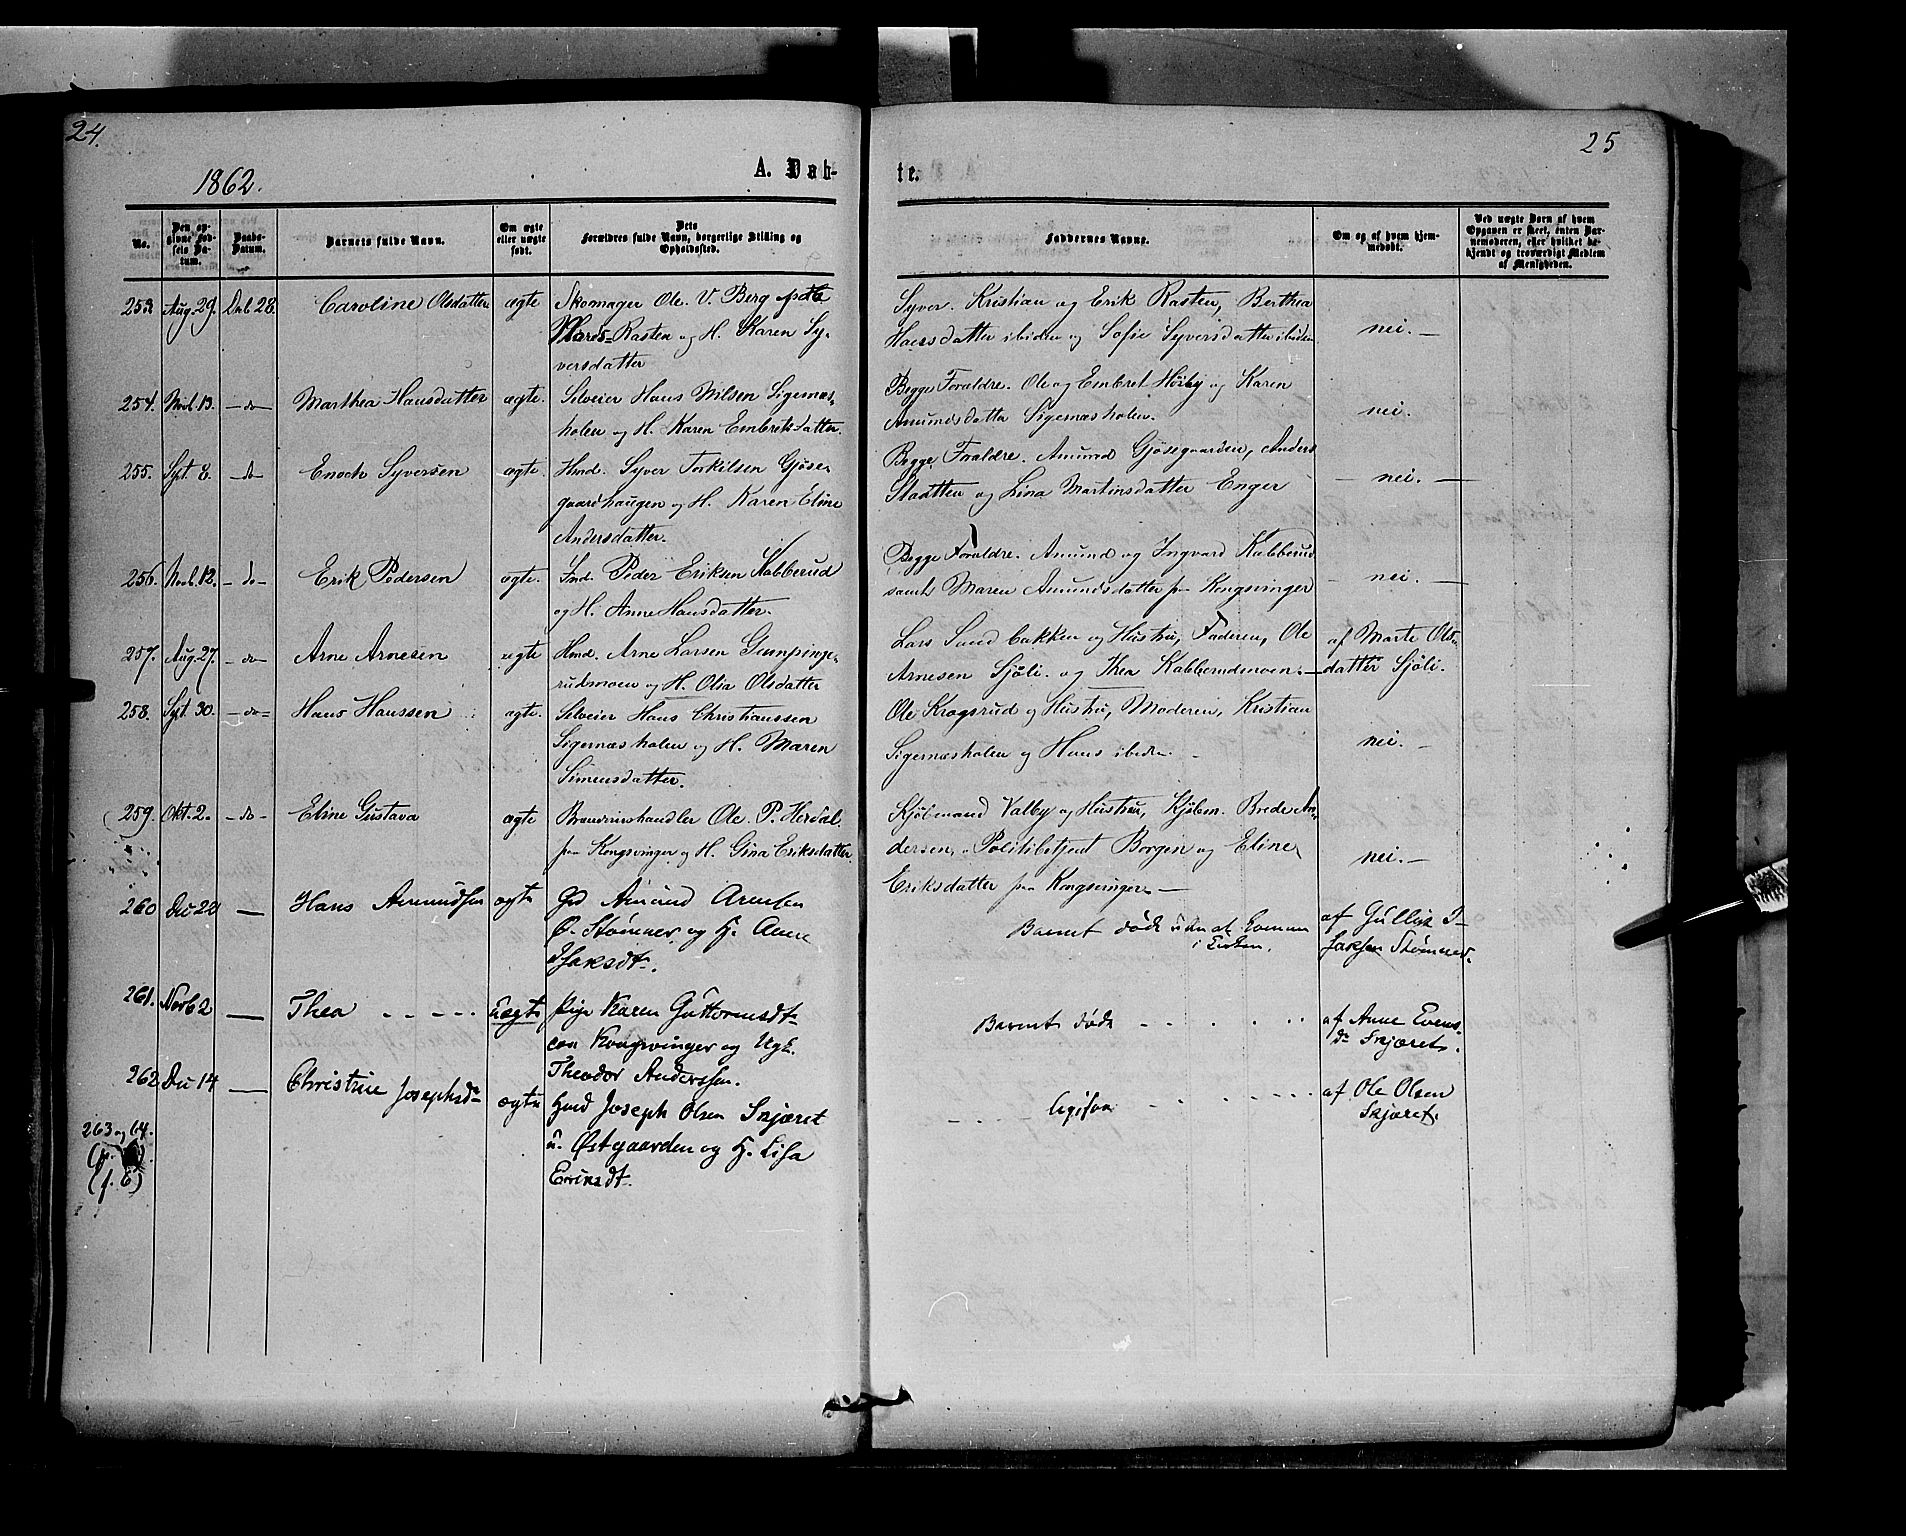 24.
25
1862.
A. Døb-
te.
No.
Den op-
givne Fød-
sels Da-
tum.
Daabs-
Datum.
Barnets fulde Navn.
Om ægte
eller uægte
født.
Dets
Forældres fulde Navn, borgerlige Stilling og
Opholdssted.
Faddernes Navne.
Om og af hvem hjem-
medøbt.
Ved uægte Børn af hvem
Opgaven er skeet, enten Bar-
nemoderen, eller hvilket be-
kjendt og troværdigt Medlem
af Menigheden.
253. Aug. 29. Decb 28. Caroline Olsdatter ægte Skomager Ole. V. Berg
Rasten og H. Karen Sy-
versdatter
Syver. Kristian og Erik Rasten, Berthea
Hansdatter ibiden og Sofie Syversdatter ibiden
nei. —
254. Novb. 13. — do — Marthea Hansdatter ægte. Selveier Hans Nilsen Sigernæs-
holen og H. Karen Embretsdatter.
Begge Forældre. Ole og Embret Høiby og Karen
Amundsdatter Sigernæsholen.
nei.
255. Sept. 8. — do — Enoch Syversen ægte. Hmd. Syver Torkilsen Gjøse-
gaardhaugen og H. Karen Eline
Andersdatter.
Begge Forældre. Amund Gjøsegaarden, Anders
Slaatten og Lina Martinsdatter Enger
— nei. —
256. Novb. 12. — do — Erik Pedersen ægte. Ind. Peder Eriksen Kabberud
og H. Anne Hansdatter.
Begge Forældre. Amund og Ingvard Kabberud
samt Maren Amundsdatter fra Kongsvinger
— nei. —
257. Aug. 27. — do — Arne Arnesen ægte Hmd. Arne Larsen Gumpinge-
rudmoen og H. Olia Olsdatter
Lars Sandbakken og Hustru, Faderen, Ole
Arnesen Sjøli og Thea Kabberudmoen. —
af Marte Ols-
datter Sjøli.
258. Sept. 30. — do — Hans Hanssen ægte. Selveier Hans Christianssen
Sigernæsholen og H. Maren
Simensdatter.
Ole Krogsrud og Hustru, Moderen, Kristian
Sigernæsholen og Hans ibiden
nei. —
259. Okt. 2. — do — Eline Gustava ægte Brændevinshandler Ole. P. Herdal
fra Kongsvinger og H. Gina Eriksdatter
Kjøbmand Valby og Hustru, Kjøbm. Brede An-
dersen, Politibetjent Borgen og Eline
Eriksdatter fra Kongsvinger. —
nei. —
260 Dec 22 — Hans Amundsen ægte Amund Arnesen
Ø. Stømner og H. Anne
Isaksdt.
Barnet døde uden at komme
i Kirken.
af Gullik I-
saksen Stømner.
261. Novb 2 — Thea uægte Pige Karen Guttormsdt
Kongsvinger og Ugk.
Theodor Anderssen.
Barnet døde
af Anne Evens-
dr Skjæret.
262 Dec 14 — Christine Josephsd ægte Hmd Joseph Olsen Skjæret
u. Østgaarden og H. Lisa
Eriksdt.
ligesaa
af Ole Olsen
Skjæret.
263 og 64.
(f. 6)